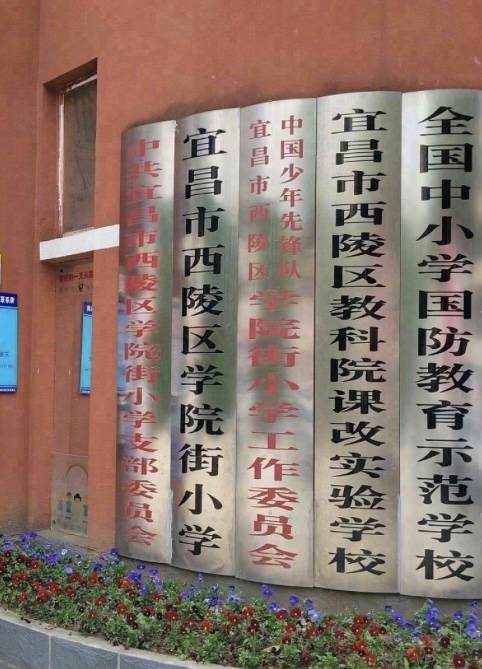 中共宜昌市西陵区学院街小学支部委员会
宜昌市西陵区学院街小学
中国少年先锋队
宜昌市西陵区
学院街小学工作委员会
宜昌市西陵区教科院课改实验学校
全国中小学国防教育示范学校